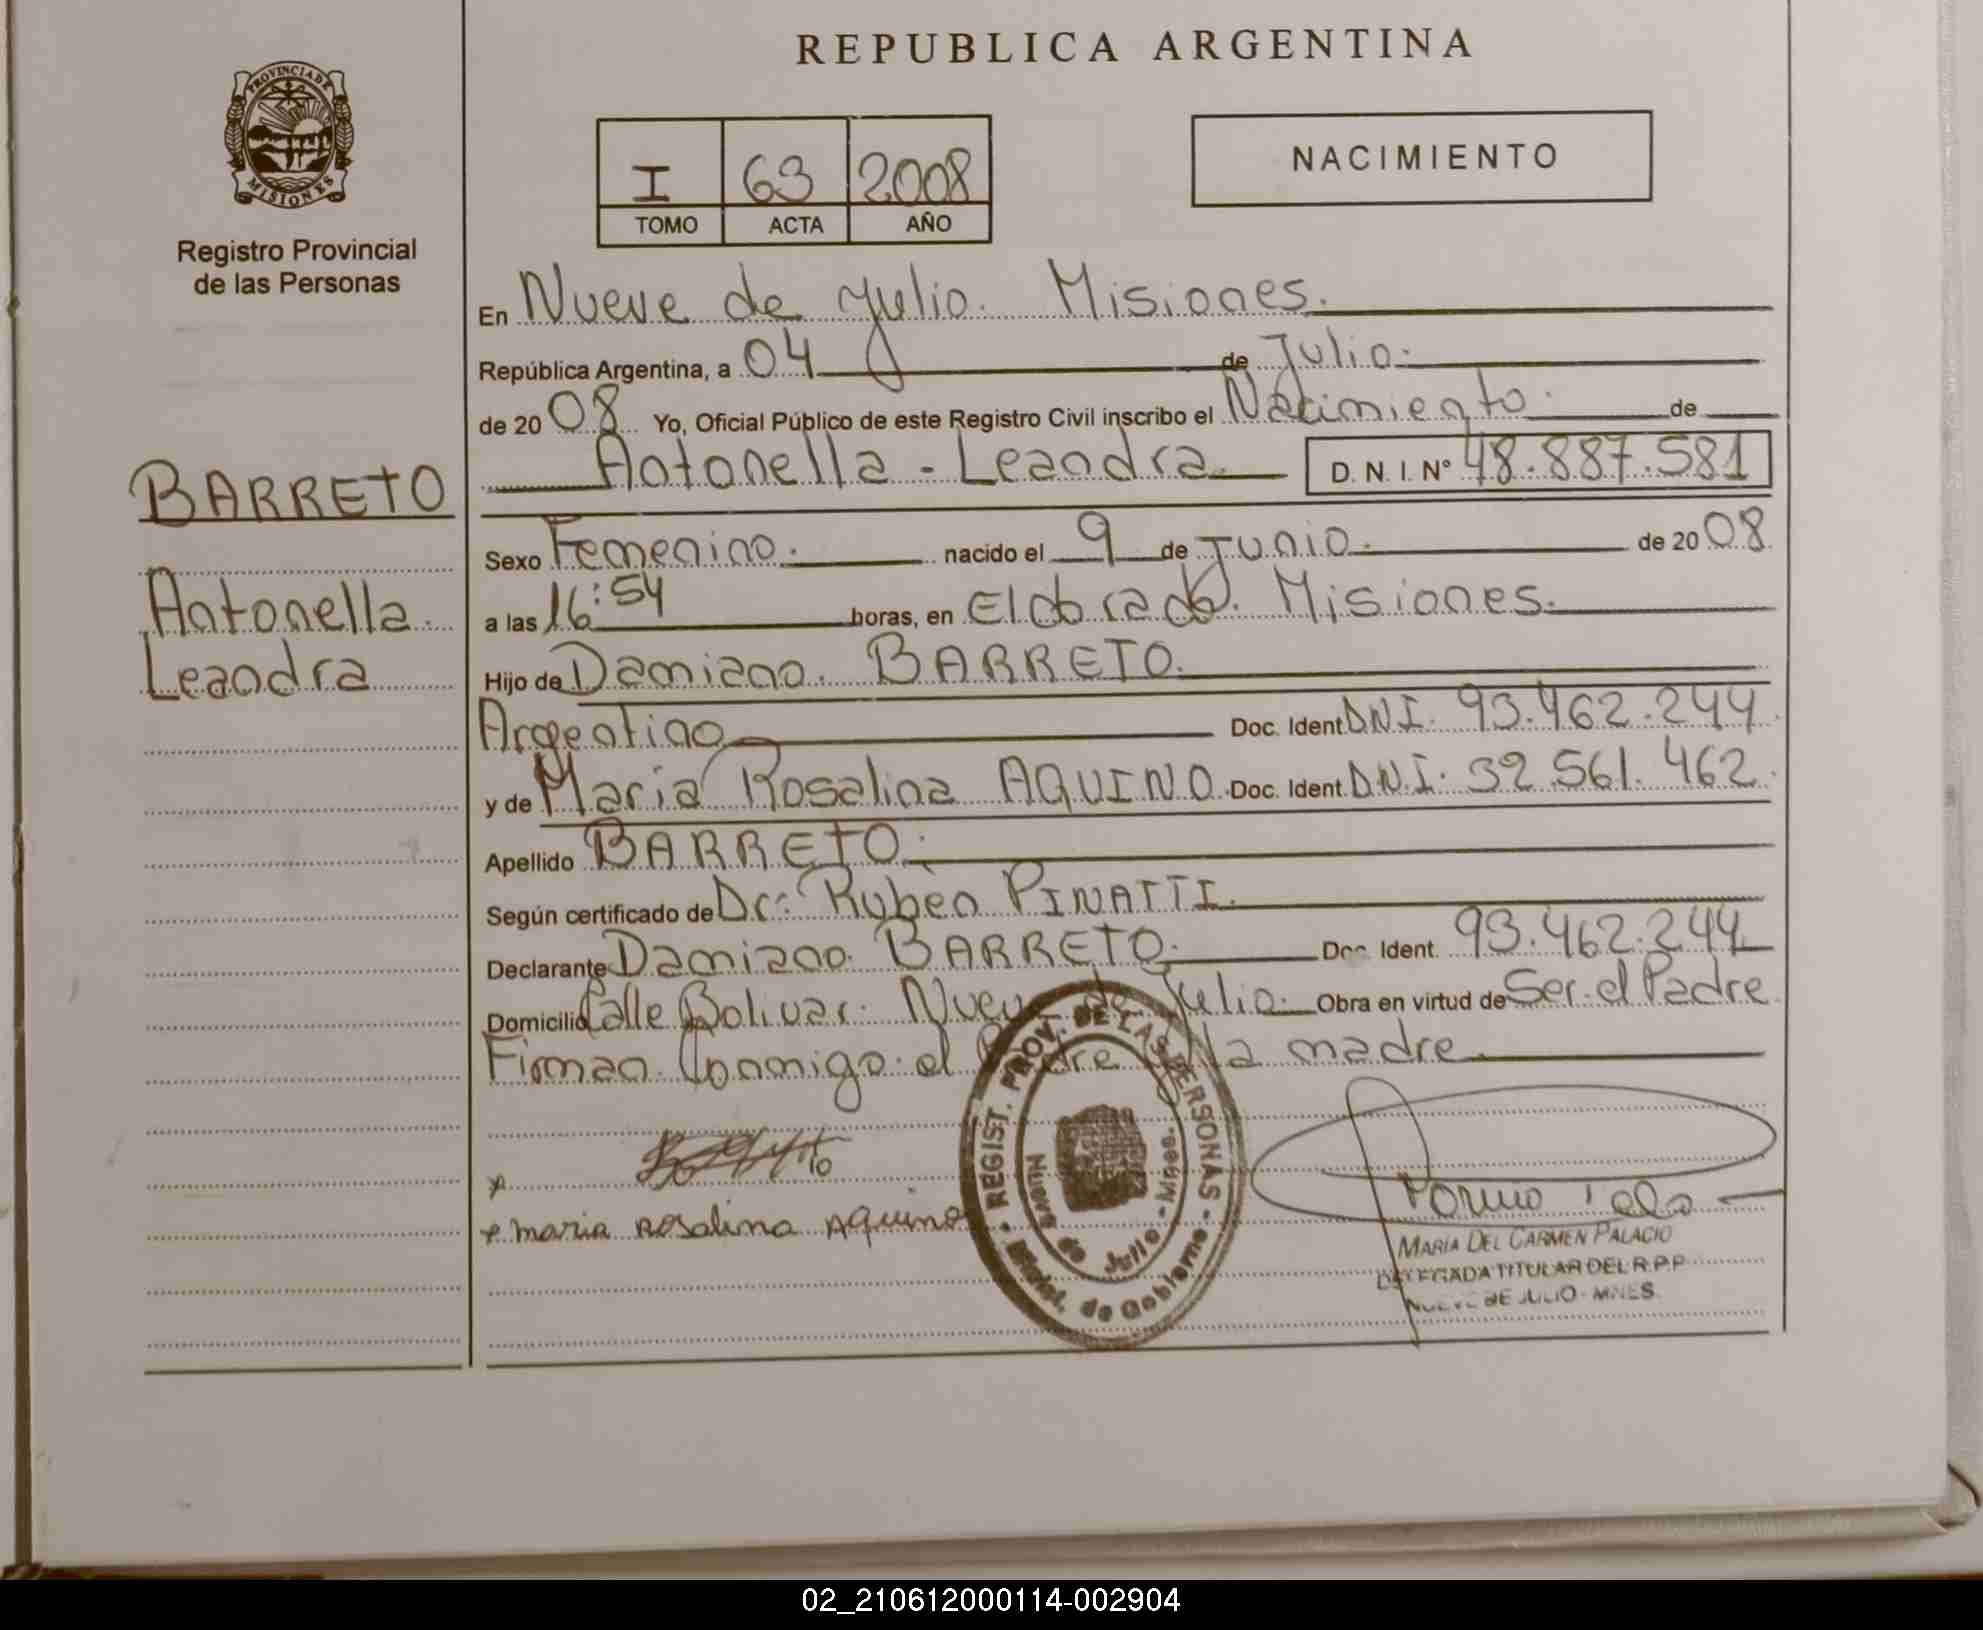 REPUBLICA ARGENTINA
PROVINCIA DE
MISIONES
Registro Provincial
de las Personas
I 63 2008
TOMO ACTA AÑO
NACIMIENTO
En Nueve de Julio. Misiones.
República Argentina, a 04 de Julio.
de 2008 Yo, Oficial Público de este Registro Civil inscribo el Nacimiento. de
Antonella - Leandra. D. N. I. N° 48.887.581
BARRETO
Antonella.
Leandra
Sexo Femenino. nacido el 9 de Junio. de 2008
a las 16:54 horas, en Eldorado. Misiones.
Hijo de Damiano. BARRETO.
Argentino Doc. Ident DNI. 93.462.244
y de Maria Rosalina AQUINO. Doc. Ident. D.N.I. 32.561.462.
Apellido BARRETO.
Según certificado de Dr: Rubén PINATTI.
Declarante Damiano. BARRETO. Doc. Ident. 93.462.244
Domicilio Calle Bolivar. Nueve de Julio. Obra en virtud de Ser el Padre
Firman Conmigo el Padre y la madre
x
x maria Rosalina Aquino
REGIST. PROV. DE LAS PERSONAS - Minist. de Gobierno
Nueve de Julio - Mnes.
MARIA DEL CARMEN PALACIO
DELEGADA TITULAR DEL R.P.P
NUEVE DE JULIO - MNES.
02_210612000114-002904